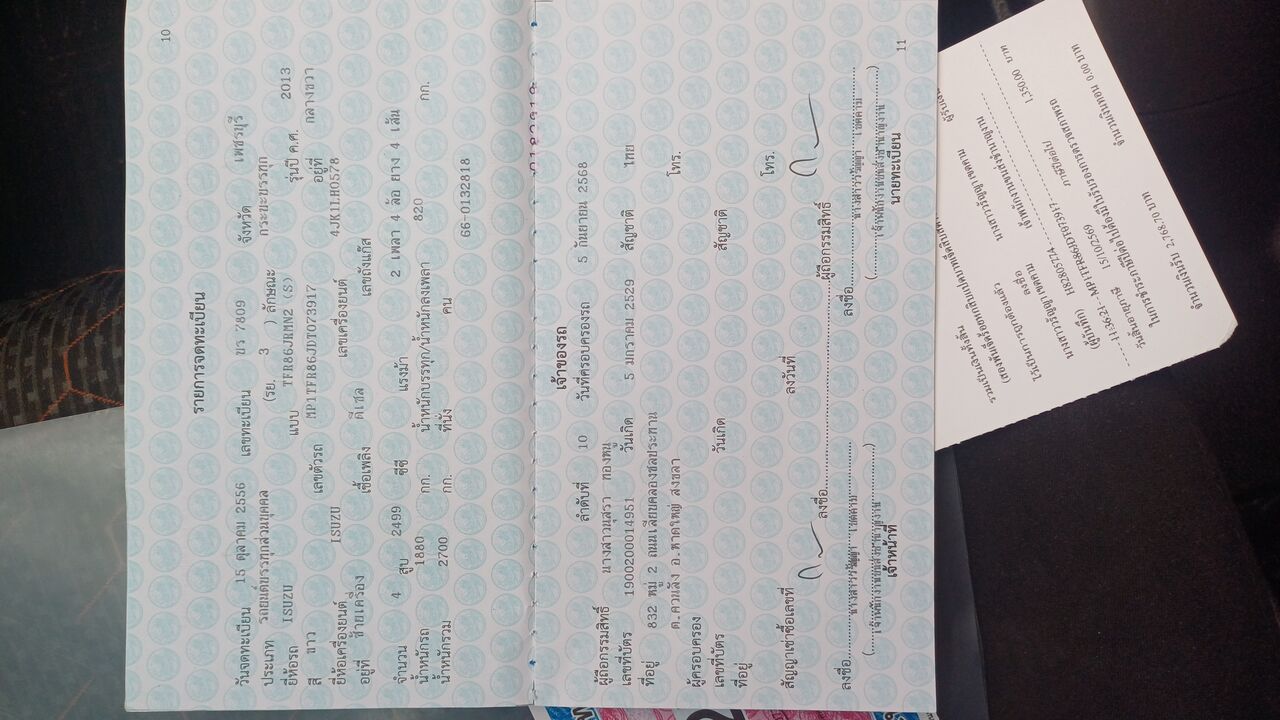 10
รายการจดทะเบียน
วันจดทะเบียน 15 ตุลาคม 2556 เลขทะเบียน ขร 7809 จังหวัด เพชรบุรี
ประเภท รถยนต์บรรทุกส่วนบุคคล (รย. 3 ) ลักษณะ กระบะบรรทุก
ยี่ห้อรถ ISUZU แบบ TFR86JRMN2 (S) รุ่นปี ค.ศ. 2013
สี ขาว เลขตัวรถ MP1TFR86JDT073917 อยู่ที่ กลางขวา
ยี่ห้อเครื่องยนต์ ISUZU เลขเครื่องยนต์ 4JK1LH0578
อยู่ที่ ซ้ายเครื่อง เชื้อเพลิง ดีเซล เลขถังแก๊ส
จำนวน 4 สูบ 2499 ซีซี แรงม้า 2 เพลา 4 ล้อ ยาง 4 เส้น
น้ำหนักรถ 1880 กก. น้ำหนักบรรทุก/น้ำหนักลงเพลา 820 กก.
น้ำหนักรวม 2700 กก. ที่นั่ง คน 66-0132818
เจ้าของรถ
ลำดับที่ 10 วันที่ครอบครองรถ 5 กันยายน 2568
ผู้ถือกรรมสิทธิ์ นางสาวนุสรา ทองหนู
เลขที่บัตร 1900200014951 วันเกิด 5 มกราคม 2529 สัญชาติ ไทย
ที่อยู่ 832 หมู่ 2 ถนนเลียบคลองชลประทาน โทร.
ต.ควนลัง อ.หาดใหญ่ สงขลา
ผู้ครอบครอง
เลขที่บัตร วันเกิด สัญชาติ
ที่อยู่ โทร.
สัญญาเช่าซื้อเลขที่ ลงวันที่
ลงชื่อ ผู้ถือกรรมสิทธิ์
ลงชื่อ ลงชื่อ
(เจ้าพนักงานขนส่งชำนาญงาน) (เจ้าพนักงานขนส่งชำนาญงาน)
เจ้าหน้าที่ นายทะเบียน
11
ลงชื่อ
เจ้าพนักงานขนส่งชำนาญงาน
11:36:21--MP1TFR86JDT073917
15/10/2569
1,350.00 บาท
จำนวนเงินรับ 2,768.70 บาท
จำนวนเงินทอน 0.00 บาท